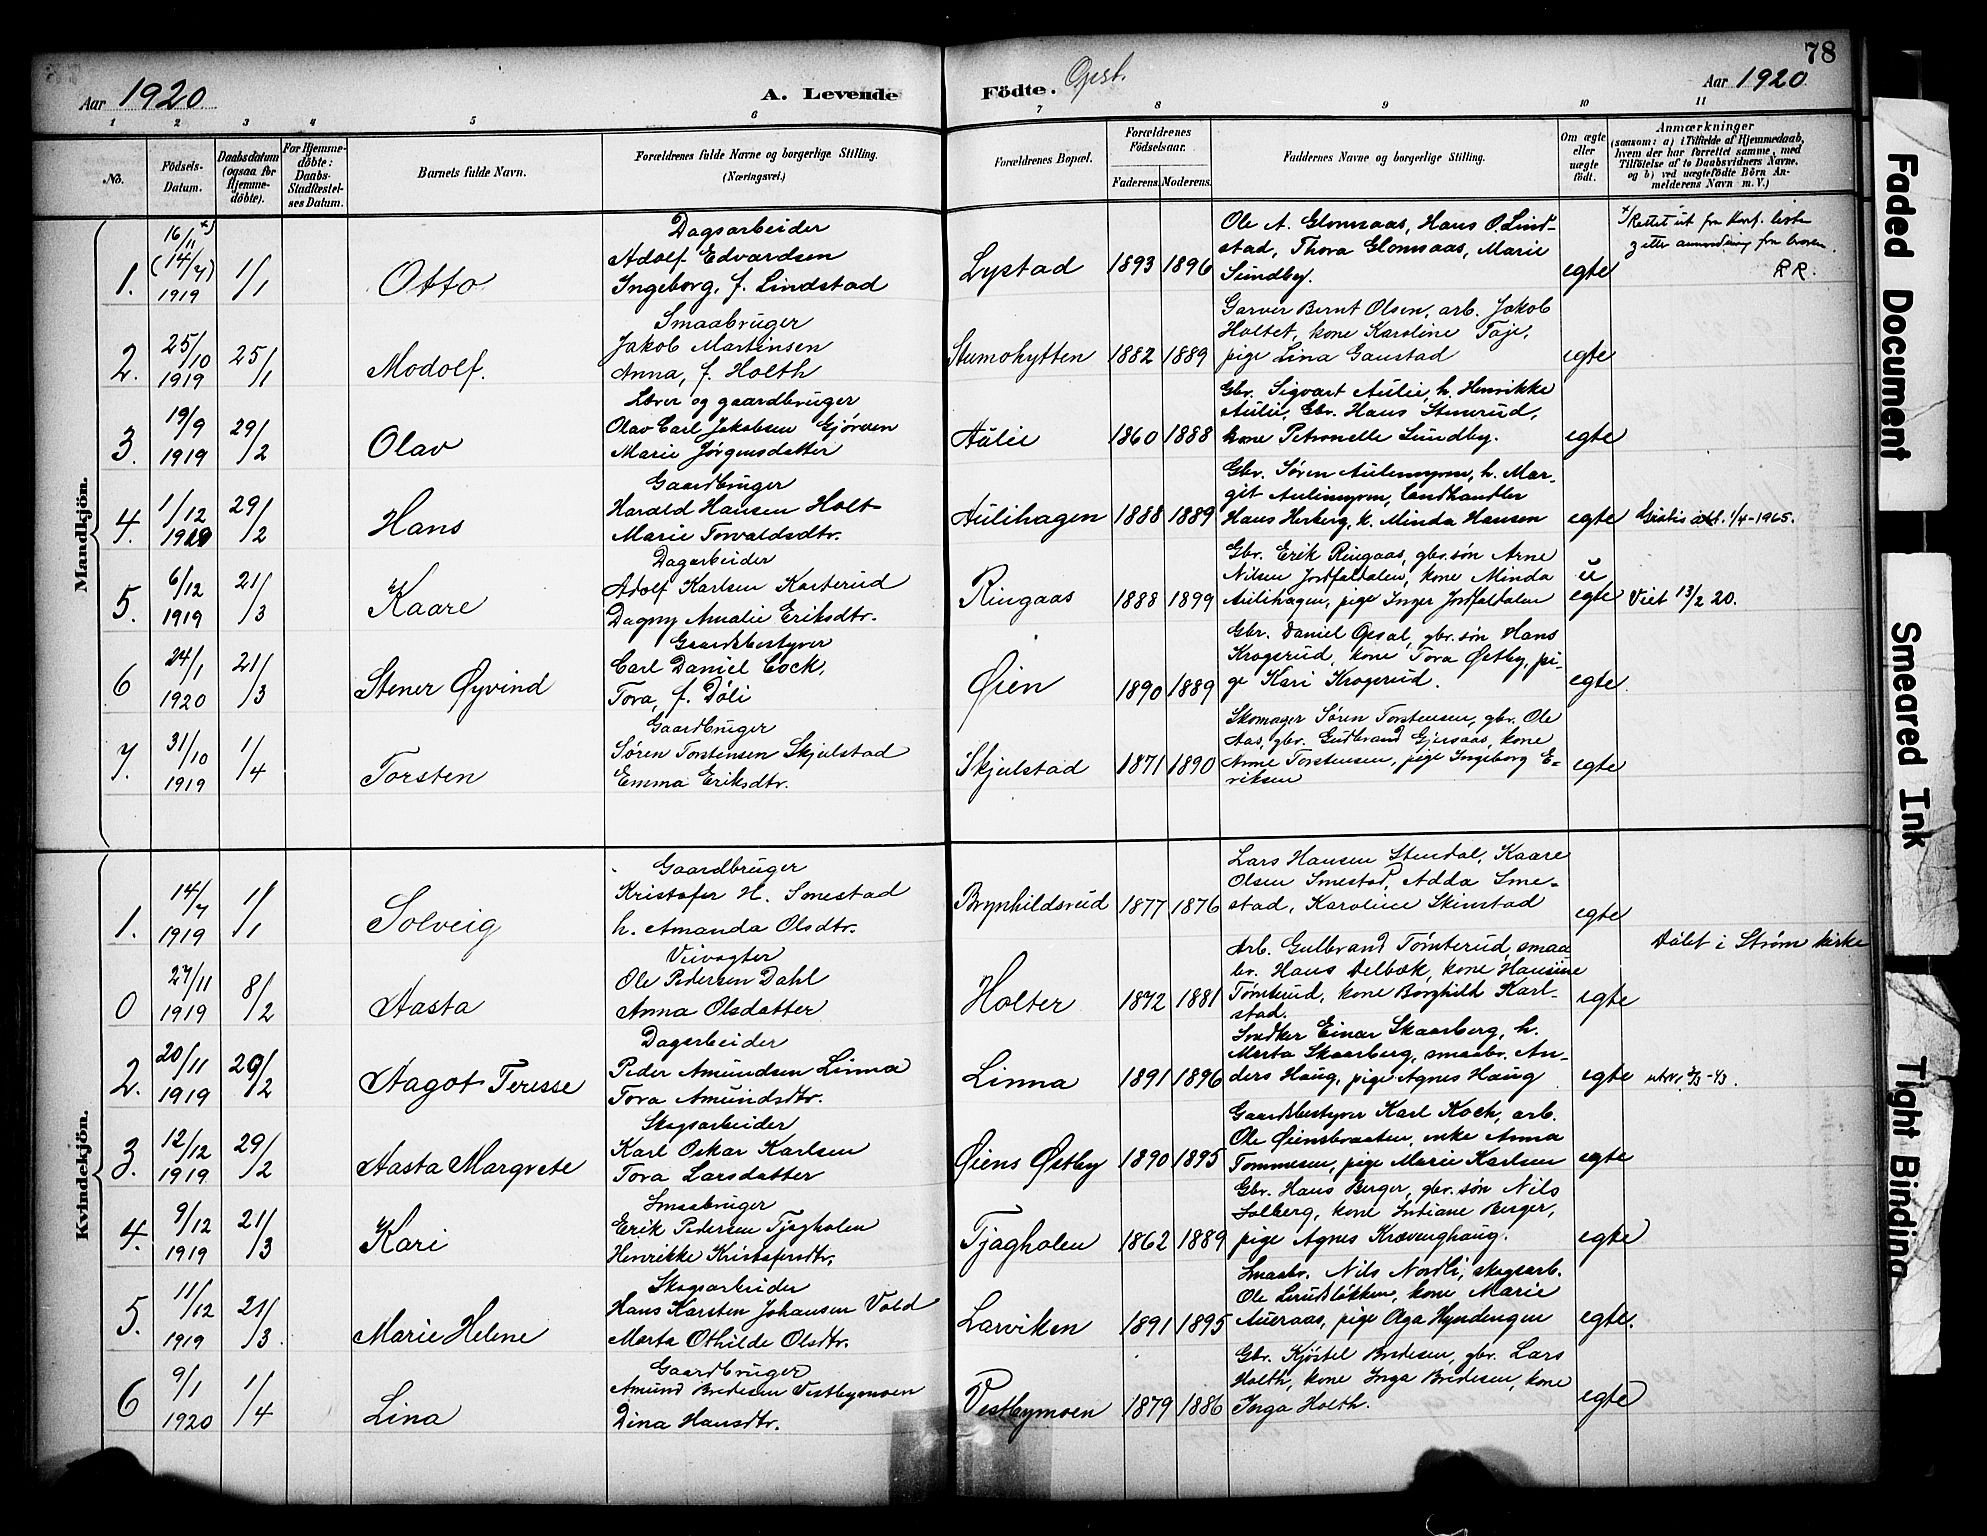 78
Aar 1920
A. Levende
Fødte. Opst.
Aar 1920
1 2 3 4 5 6 7 8 9 10 11
No.
Fødsels-
Datum.
Daabsdatum
(ogsaa for
Hjemme-
døbte).
For Hjemme-
døbte:
Daabs-
Stadfæstel-
ses Datum.
Barnets fulde Navn.
Forældrenes fulde Navne og borgerlige Stilling.
(Næringsvei.)
Forældrenes Bopæl.
Forældrenes
Fødselsaar.
Faderens. Moderens.
Faddernes Navne og borgerlige Stilling.
Om ægte
eller
uægte
født.
Anmærkninger
(saasom: a) i Tilfælde af Hjemmedaab,
hvem der har forrettet samme, med
Tilføielse af to Daabsvidners Navne,
og b) ved uægtefødte Børn An-
melderens Navn m. V.)
Mandkjön.
1. 16/11 x) (14/7) 1919 1/1 Otto
Dagsarbeider
Adolf Edvardsen
Ingeborg, f. Lindstad
Lystad 1893 1896
Ole A. Glomsaas, Hans O. Lind-
stad, Thora Glomsaas, Marie
Sundby.
egte
x) Rettet ut fra konf. liste
R R.
2. 25/10 1919 25/1 Modolf.
Smaabruger
Jakob Martinsen
Anna, f. Holth
Stumohytten 1882 1889
Garver Bernt Olsen, arb. Jakob
Holtet, kone Karoline Taje,
pige Lina Gaustad
egte
3. 19/9 1919 29/2 Olav
Lærer og gaardbruger
Olav Carl Jakobsen Gjörsen
Marie Jørgensdatter
Aulie 1860 1888
Gbr. Sigvart Aulie, h. Henrikke
Aulie, Gbr. Hans Stenerud,
kone Petronelle Sundby.
egte
4. 1/12 1919 29/2 Hans
Gaardbruger
Harald Hansen Holt
Marie Torvaldsdtr.
Aulihagen 1888 1889
Gbr. Søren Aulimyren, h. Mar-
git Aulimyren, Landhandler
Hans Herberg, k. Minda Hansen
egte
Gratis att. 1/4-1965.
5. 6/12 1919 21/3 Kaare
Dagarbeider
Adolf Karlsen Karterud
Dagny Amalie Eriksdtr.
Ringaas 1888 1899
Gbr. Erik Ringaas, gbr.søn Arne
Nilsen Jostfaldalen, kone Minda
Aulihagen, pige Inger Jostfaldalen
u
egte
Viet 13/2 20.
6 24/1 1920 21/3 Stener Øyvind
Gaardsbestyrer
Carl Daniel Cock,
Tora, f. Döli
Øien 1890 1889
Gbr. Daniel Opsal, gbr.søn Hans
Krogerud, kone Tora Østby, pi-
ge Kari Krogerud.
egte.
7. 31/10 1919 1/4 Torsten
Gaardbruger
Søren Torstensen Skjulstad
Emma Eriksdtr.
Skjulstad 1871 1890
Skomager Søren Torstensen, gbr. Ole
Aas, gbr. Gudbrand Gjersaas, kone
Anne Torstensen, pige Ingeborg E-
riksen
egte
Kvindekjön.
1. 14/7 1919 1/1 Solveig
Gaardbruger
Kristofer H. Smestad
h. Amanda Olsdtr.
Brynhildsrud 1877 1876
Lars Hansen Stendal, Kaare
Olsen Smestad, Adda Sme-
stad, Karoline Skinstad
egte
0 27/11 1919 8/2 Aasta
Veivogter
Ole Pedersen Dahl
Anna Olsdatter
Holter 1872 1881
Arb. Gulbrand Tømterud, smaa
br. Hans Delbæk, kone Hansine
Tømterud, kone Borghild Karl-
stad.
egte
Døbt i Strøm kirke
2. 20/11 1919 29/2 Aagot Teresse
Dagarbeider
Peder Amundsen Linna
Tora Amundsdtr.
Linna 1891 1896
Snedker Einar Skaarberg, h.
Marta Skaarberg, smaabr. An-
ders Haug, pige Agnes Haug
egte
3. 12/12 1919 29/2 Aasta Margrete
Skogsarbeider
Karl Oskar Karlsen
Tora Larsdatter
Øiens Østby 1890 1895
Gaardsbestyrer Karl Koch, arb.
Ole Øiensbraaten, enke Anna
Tommesen, pige Marie Karlsen
egte
4. 9/12 1919 21/3 Kari
Smaabruger
Erik Pedersen Tjagholen
Henrikke Kristofersdtr.
Tjagholen 1862 1889
Gbr. Hans Berger, gbr.søn Nils
Solberg, kone Intiane Berger,
pige Agnes Krævenghaug.
egte
5. 11/12 1919 21/3. Marie Helene
Skogsarbeider
Hans Karsten Johansen Vold
Marta Othilde Olsdtr.
Larviken 1891 1895
Smaabr. Nils Nordli, skogsarb.
Ole Lerudløkken, kone Marie
Aueraas, pige Olga Hyndengen
egte.
6 9/1 1920 1/4 Lina
Gaardbruger
Amund Bredesen Vestbymoen
Dina Hansdtr.
Vestbymoen 1879 1886
Gbr. Kjöstel Bredesen, gbr. Lars
Holth, kone Inga Bredesen, kone
Inga Holth.
egte
Faded Document
Smeared Ink
Tight Binding